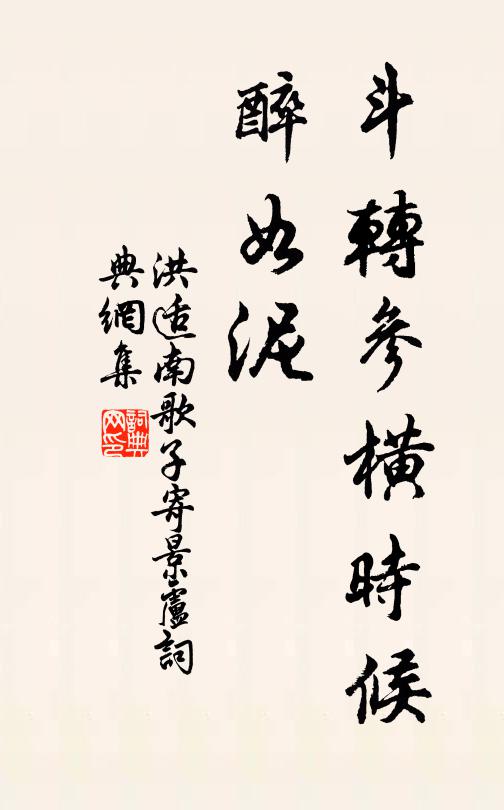 斗轉參横時候
醉如泥
洪适南歌子寄景盧詞
典網集
詞典网印